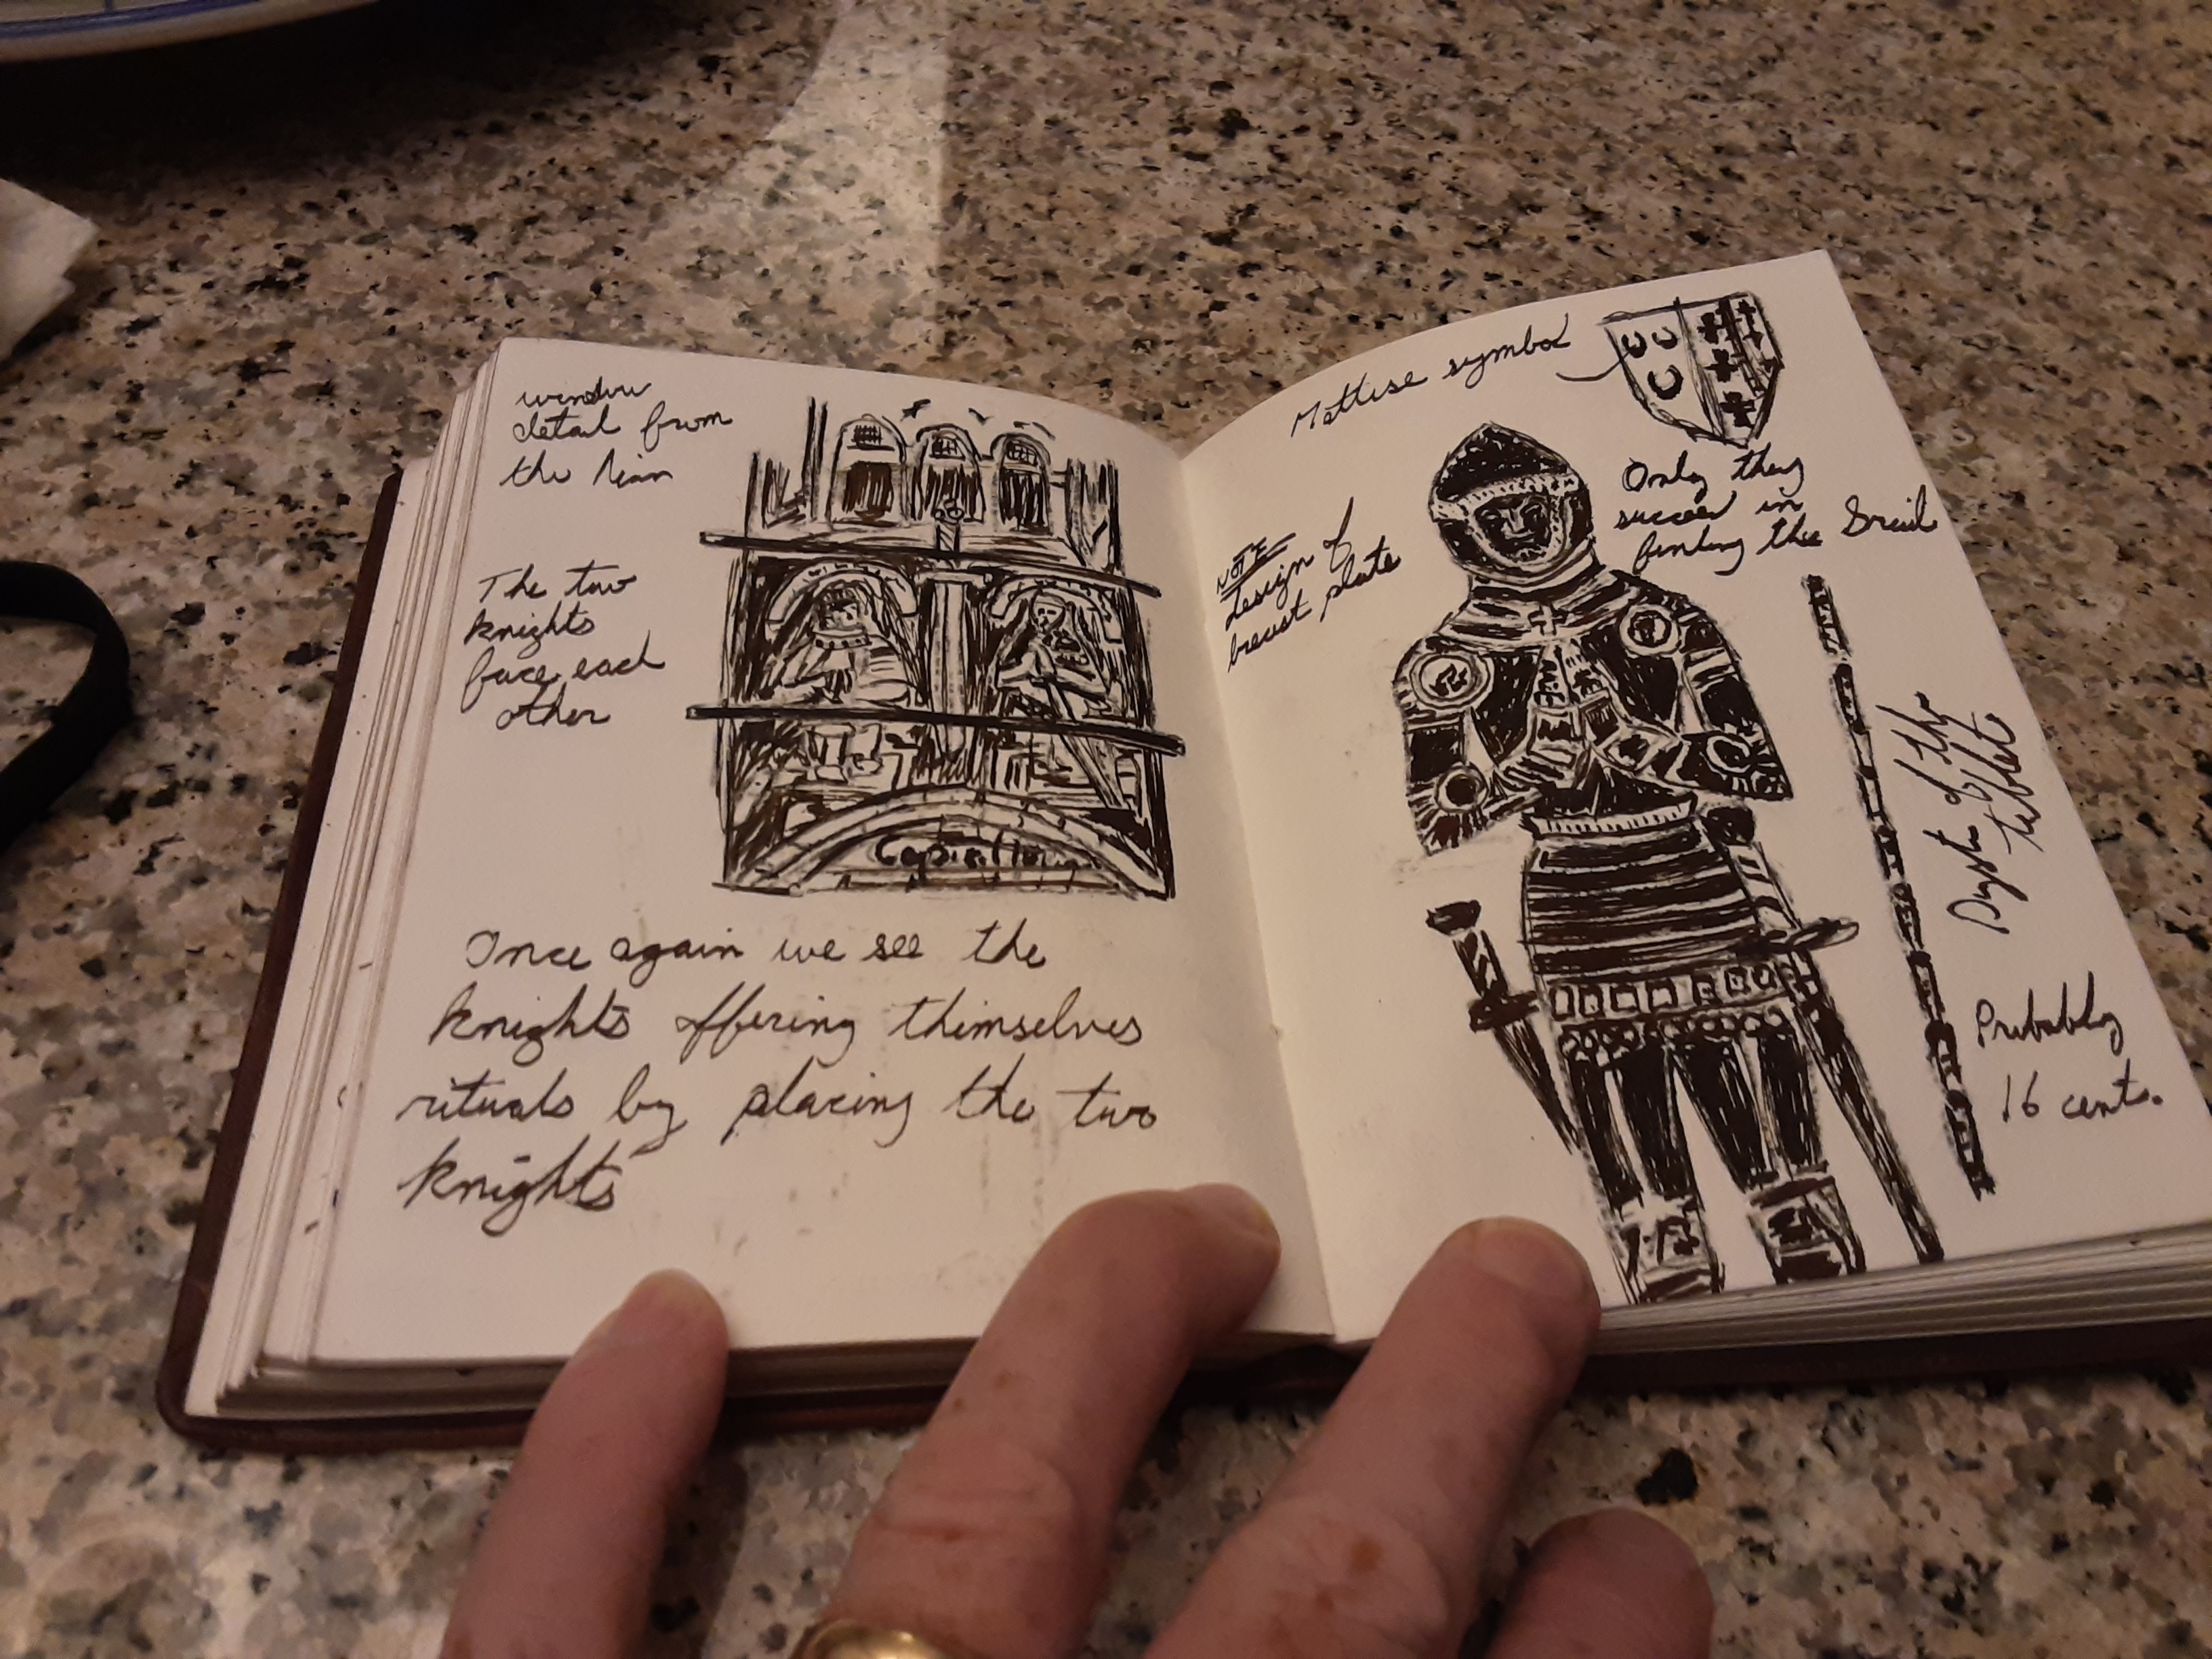 window
detail from
the
The two
knights
face each
other
Once again we see the
knights offering themselves
rituals by placing the two
knights
symbol
Only they
succeed in
finding the Grail
NOTE
design of
breast plate
of the
tablet
Probably
16 cent.